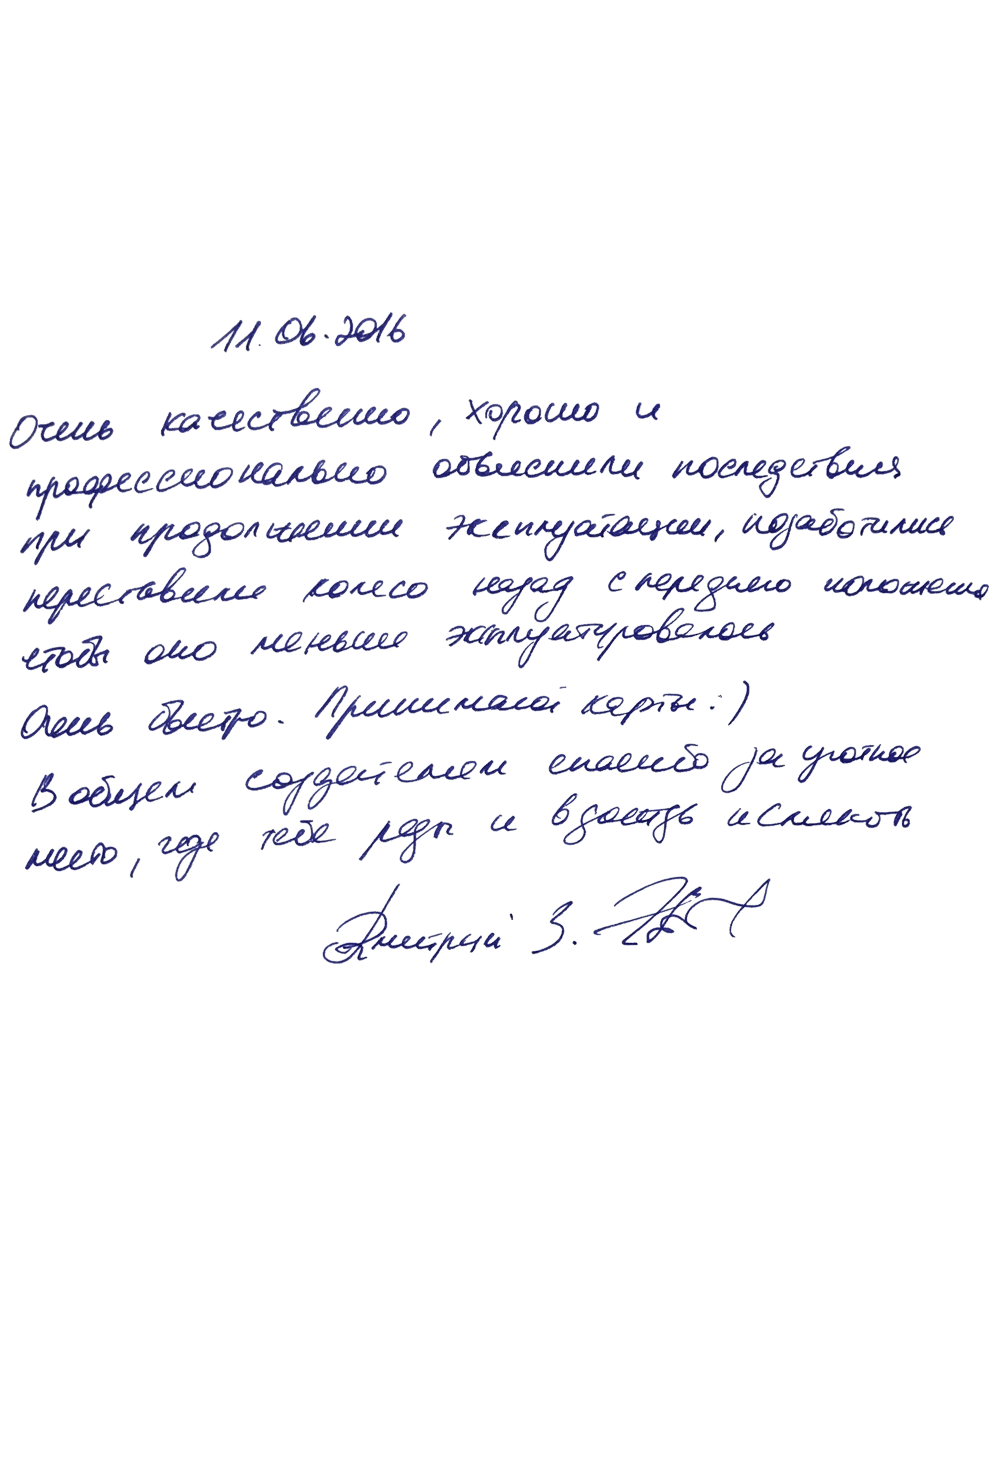 11.06.2016
Очень качественно, хорошо и
профессионально объяснили последствия
при продолжении эксплуатации, позаботились
переставили колесо назад с переднего положения
чтобы оно меньше эксплуатировалось
Очень быстро. Принимают карты :)
В общем создателям спасибо за уютное
место, где тебе рады и в дождь и слякоть
Дмитрий З.